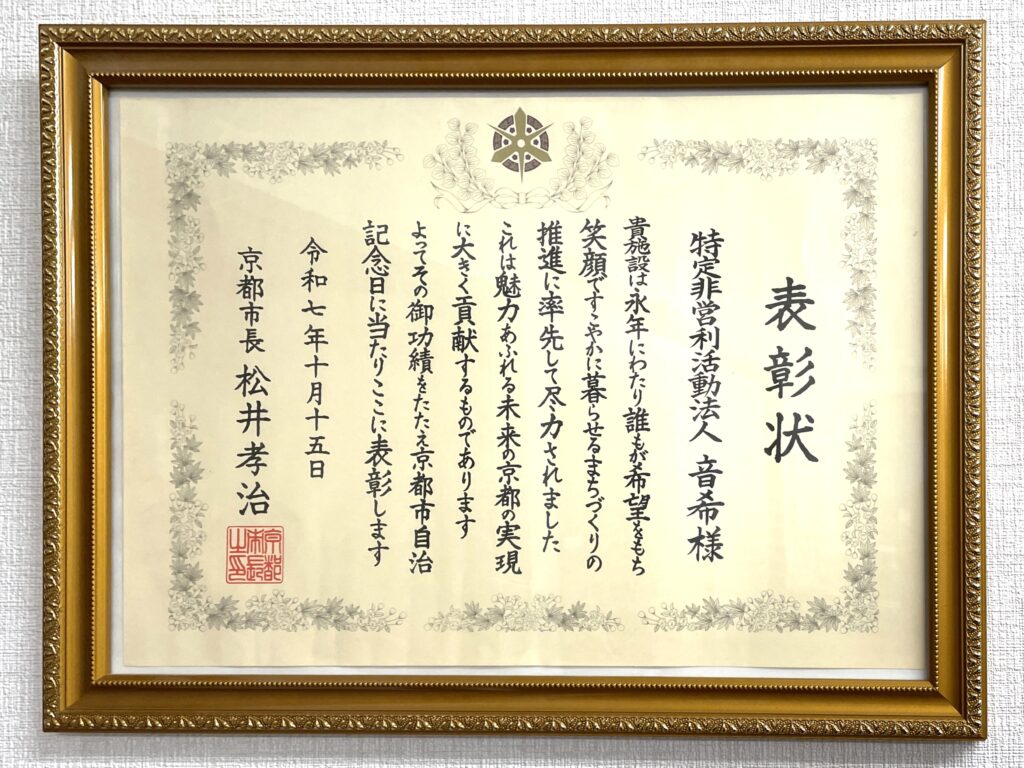 表彰状
特定非営利活動法人 音希様
貴施設は永年にわたり誰もが希望をもち
笑顔ですこやかに暮らせるまちづくりの
推進に率先して尽力されました
これは魅力あふれる未来の京都の実現
に大きく貢献するものであります
よってその御功績をたたえ京都市自治
記念日に当たりここに表彰します
令和七年十月十五日
京都市長 松井孝治
京都市長之印